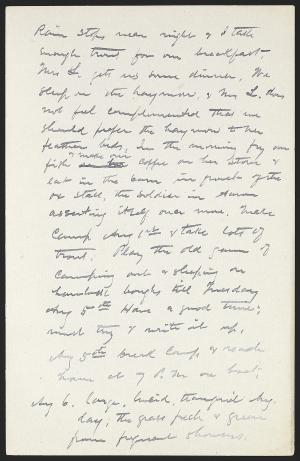 Rain stops near night & I take
enough trout for our breakfast.
Mrs L. gets us some dinner. We
sleep on the haymow, & Mrs L. does
not feel complimented that we
should prefer the haymow to her
feather beds. In the morning fry our
fish & make our coffee on her stove &
eat in the barn in front of the
ox stall, the soldier in
asserting itself once more. Make
camp Aug 1st & take lots of
trout. Play the old game of
camping out & sleeping on
hemlock boughs till Tuesday
Aug 5th Have a good time;
must try & write it up.
Aug 5th break camp & reach
home at 9 P.M. on boat.
Aug 6. Large, lucid, tranquil sky.
day; the grass fresh & green
from frequent showers.